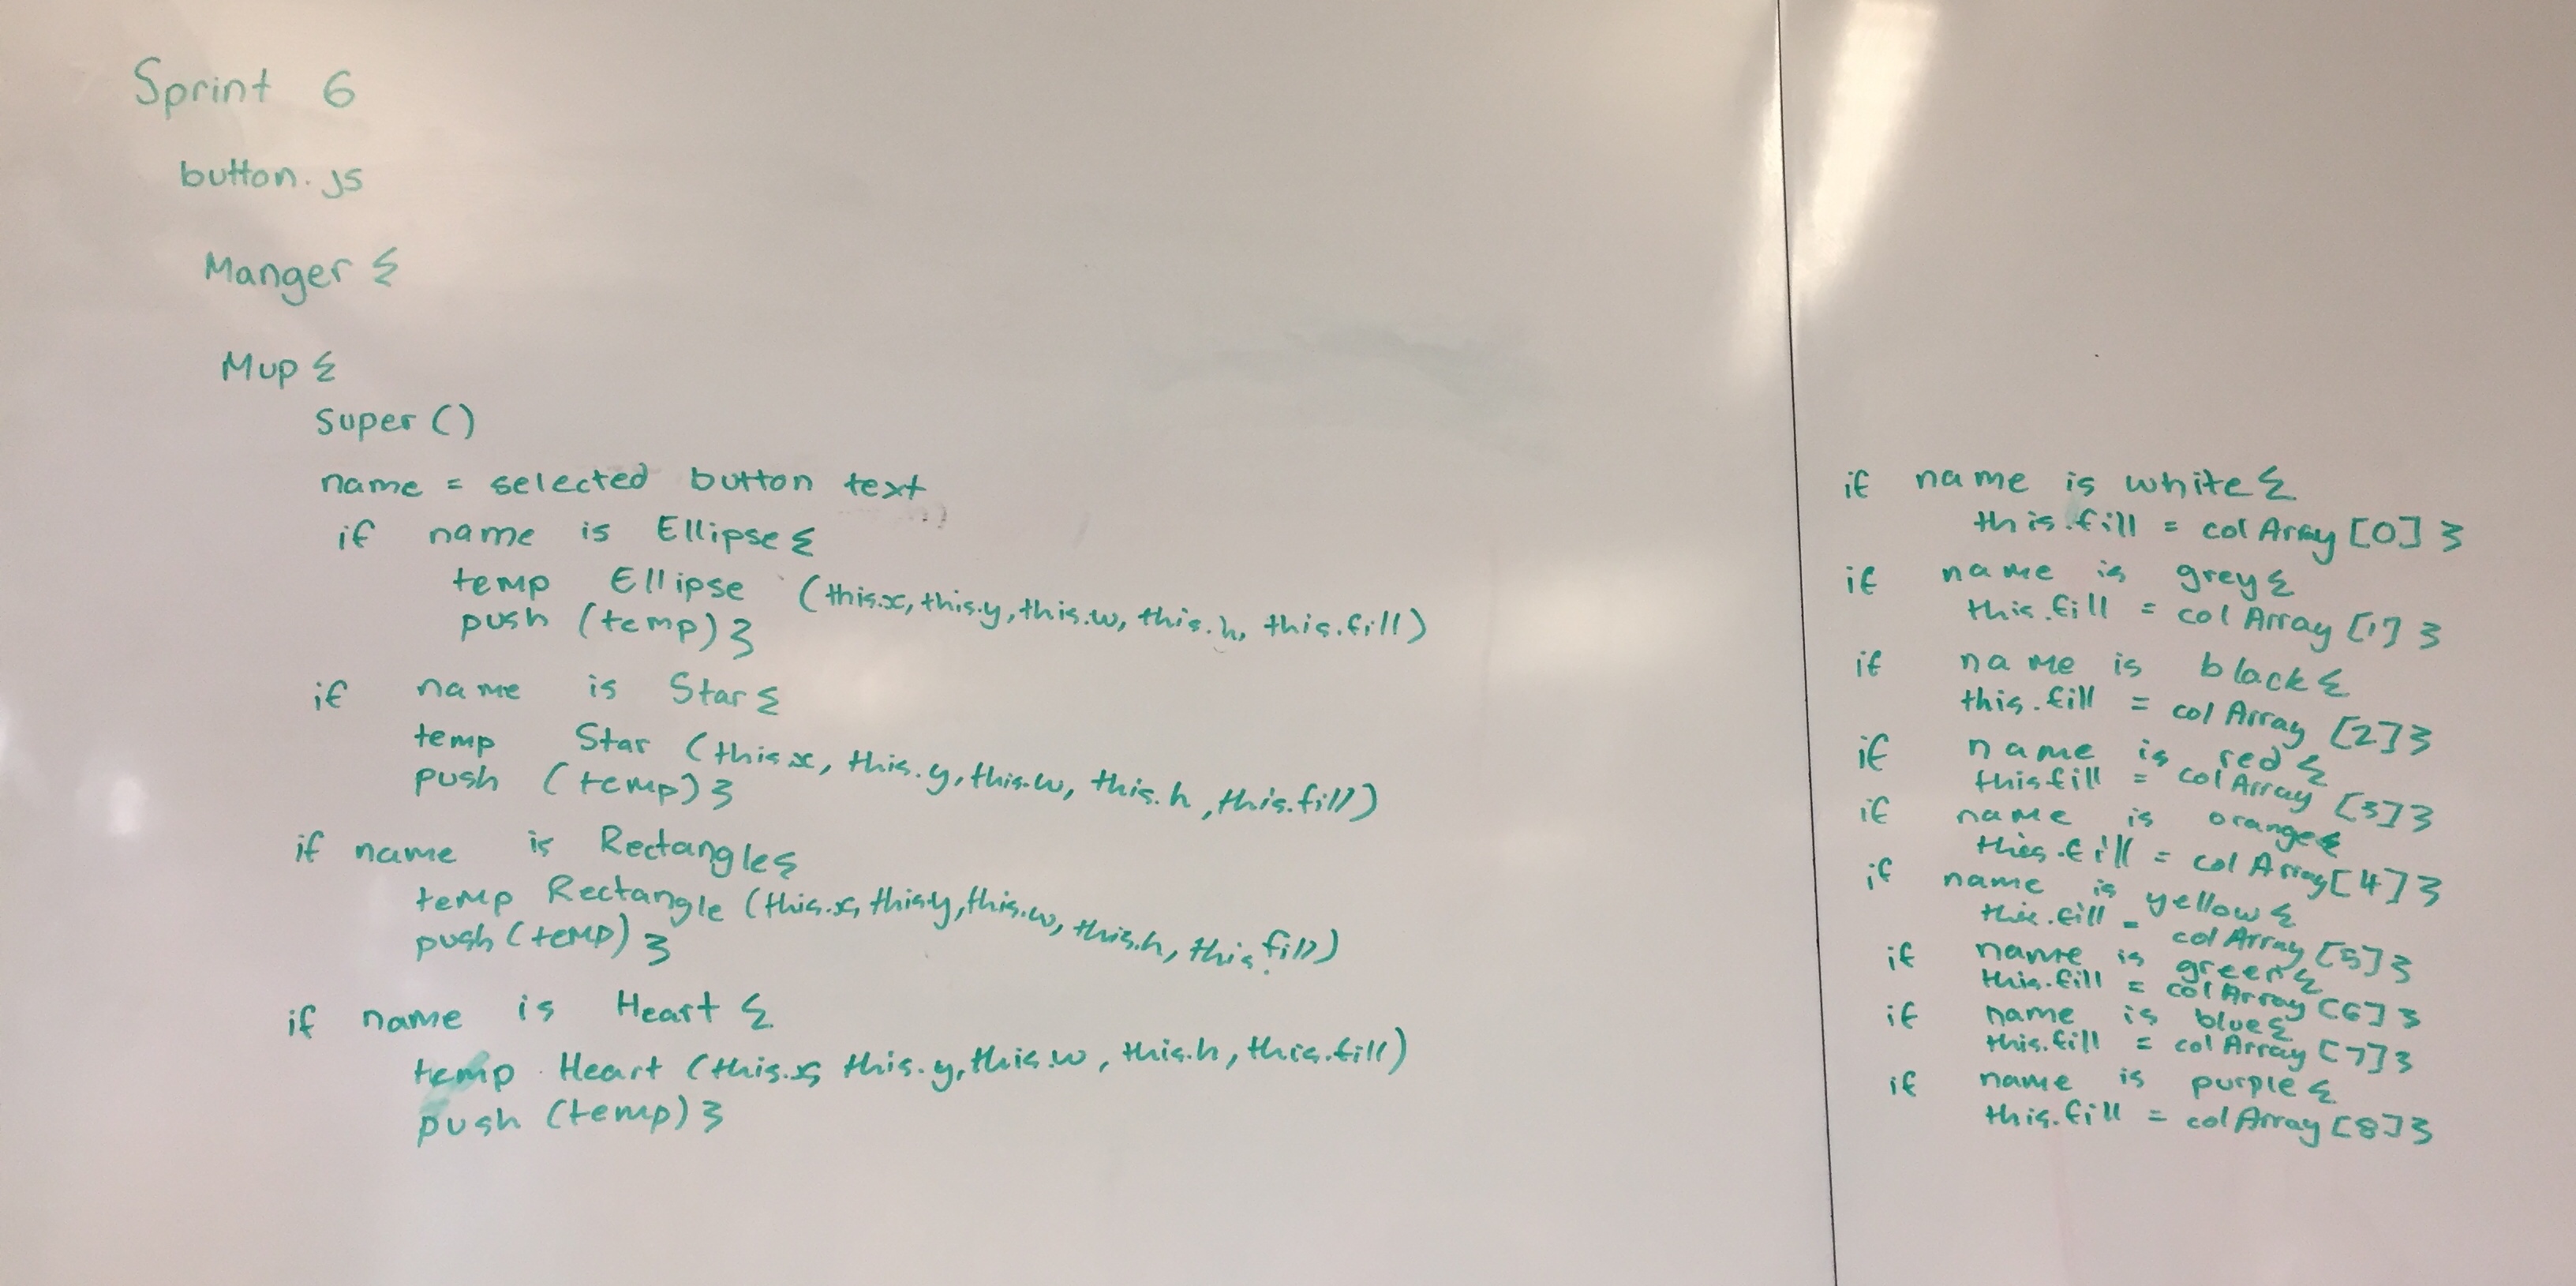 Sprint 6
button.js
Manger {
Mup {
Super ()
name = selected button text
if name is Ellipse {
temp Ellipse (this.x, this.y, this.w, this.h, this.fill)
push (temp) }
if name is Star {
temp Star (this x, this.y, this.w, this.h, this.fill)
push (temp) }
if name is Rectangle {
temp Rectangle (this.x, this.y, this.w, this.h, this.fill)
push (temp) }
if name is Heart {
temp Heart (this.x, this.y, this.w, this.h, this.fill)
push (temp) }
if name is white {
this.fill = colArray [0] }
if name is grey {
this.fill = colArray [1] }
if name is black {
this.fill = colArray [2] }
if name is red {
this fill = colArray [3] }
if name is orange {
this.fill = colArray [4] }
if name is yellow {
this.fill = colArray [5] }
if name is green {
this.fill = colArray [6] }
if name is blue {
this.fill = colArray [7] }
if name is purple {
this.fill = colArray [8] }